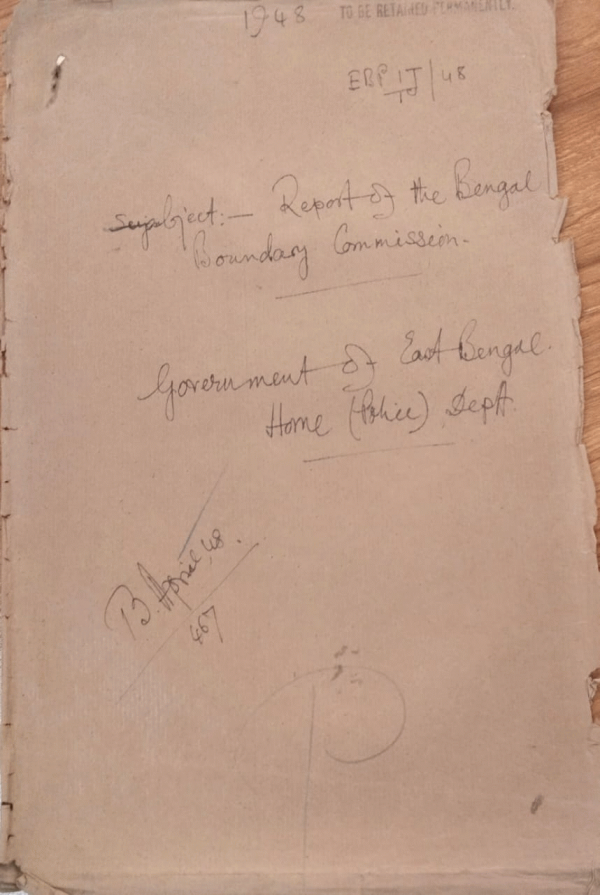 1948 TO BE RETAINED PERMANENTLY.
EBP 1J/48
Subject:— Report of the Bengal
Boundary Commission.
Government of East Bengal.
Home (Police) Dept.
B. April, 48.
467